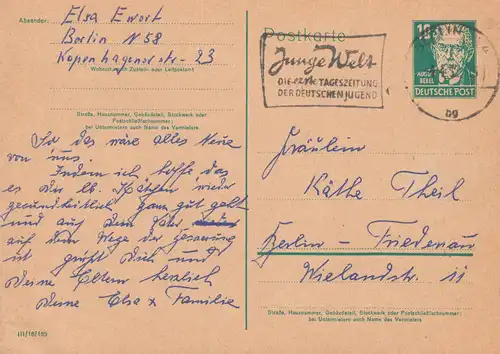 Absender: Elsa Ewort
Berlin N 58
Kopenhagener str. 23
Wohnort, auch Zustell- oder Leitpostamt
Straße, Hausnummer, Gebäudeteil, Stockwerk oder
Postschließfachnummer;
bei Untermietern auch Name des Vermieters
So das wäre alles Neue
von uns.
Indem ich hoffe das
es dir lb. Käthchen wieder
gesundheitlich ganz gut geht
und auf dem Vater
auf dem Wege der Genesung
ist grüßt Dich und
Deine Eltern herzlich
Deine Elsa + Familie
III/18/185
Postkarte
Junge Welt
DIE erste TAGESZEITUNG
DER DEUTSCHEN JUGEND
BERLIN
bg
10
AUGUST
BEBEL
DEUTSCHE POST
Fräulein
Käthe Theil
Berlin - Friedenau
Wielandstr. 11
Straße, Hausnummer, Gebäudeteil, Stockwerk oder Postschließfachnummer;
bei Untermietern auch Name des Vermieters